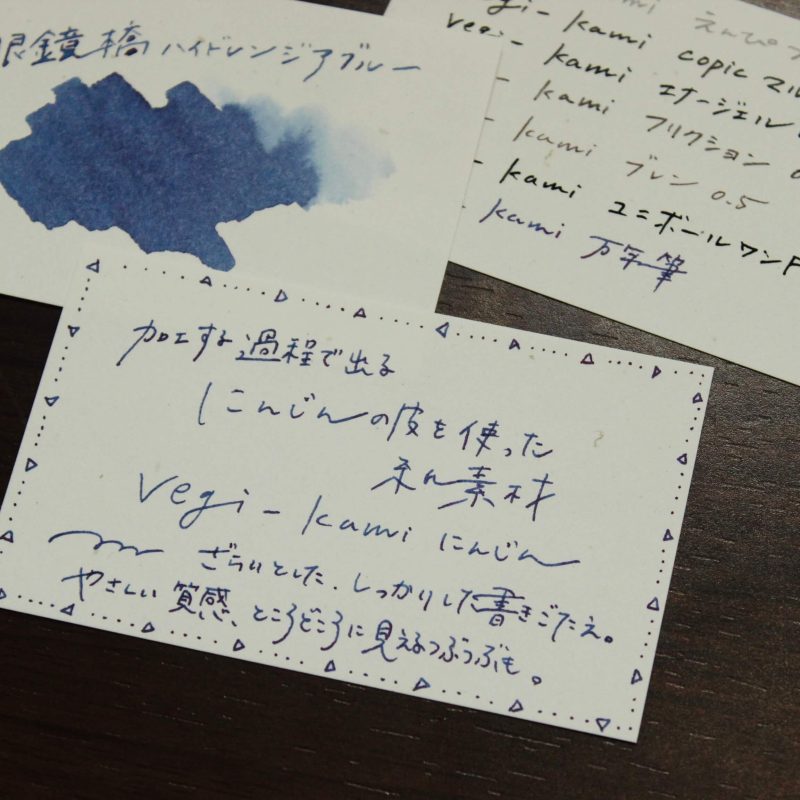 眼鏡橋 ハイドレンジアブルー
kami えんぴつ
vegi-kami copic マル
vegi-kami エナージェル
kami フリクション 0
kami ブレン 0.5
kami ユニボールワンF
kami 万年筆
加工する過程で出る
にんじんの皮を使った
紙素材
vegi-kami にんじん
ざらっとした、しっかりした書きごたえ。
やさしい質感、ところどころに見えるつぶつぶも。